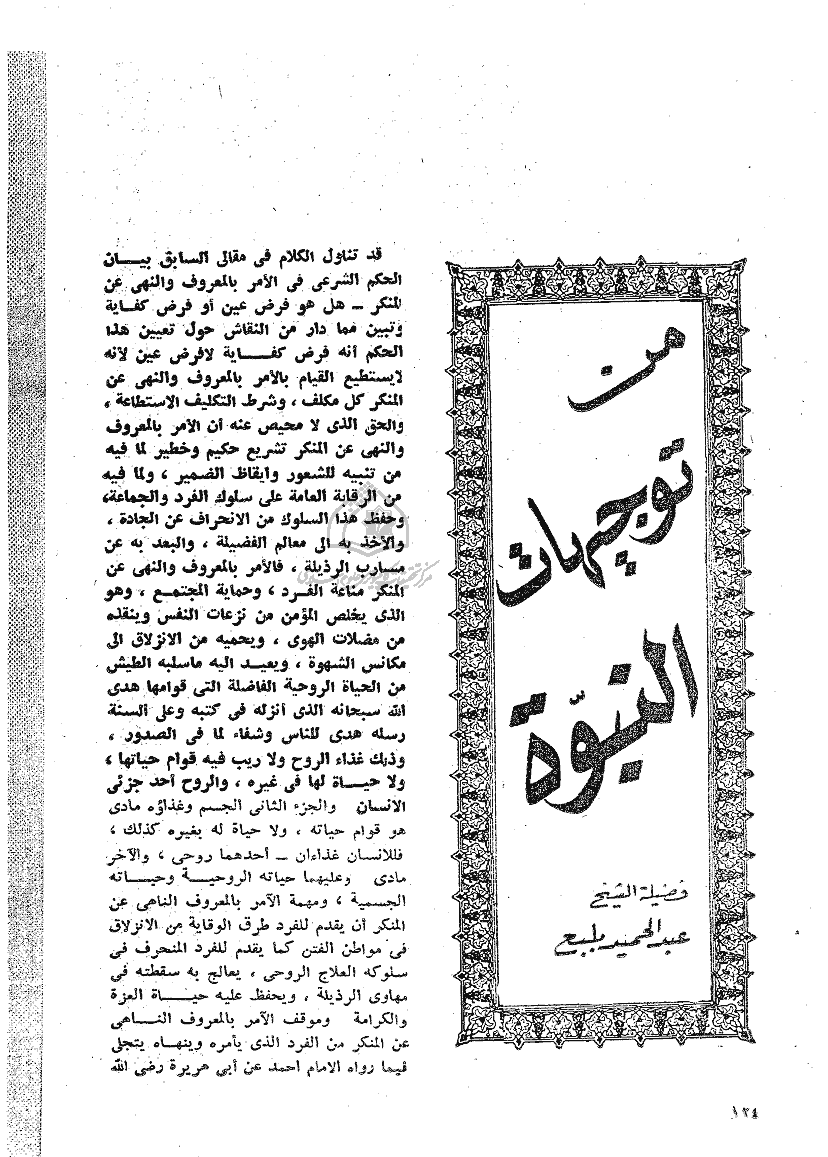 من
توجيهات
النبوّة
فضيلة الشيخ
عبد الحميد بلبع
قد تناول الكلام فى مقالى السابق بيـــان
الحكم الشرعى فى الأمر بالمعروف والنهى عن
المنكر ــ هل هو فرض عين أو فرض كفـاية
وتبين مما دار من النقاش حول تعيين هذا
الحكم أنه فرض كفـــاية لافرض عين لأنه
لايستطيع القيام بالأمر بالمعروف والنهى عن
المنكر كل مكلف ، وشرط التكليف الاستطاعة ،
والحق الذى لا محيص عنه أن الأمر بالمعروف
والنهى عن المنكر تشريع حكيم وخطير لما فيه
من تنبيه للشعور وايقاظ الضمير ، ولما فيه
من الرقابة العامة على سلوك الفرد والجماعة،
وحفظ هذا السلوك من الانحراف عن الجادة ،
والأخذ به الى معالم الفضيلة ، والبعد به عن
مسارب الرذيلة ، فالأمر بالمعروف والنهى عن
المنكر مناعة الفـرد ، وحماية المجتمـع ، وهو
الذى يخلص المؤمن من نزعات النفس وينقذه
من مضلات الهوى ، ويحميه من الانزلاق الى
مكانس الشهوة ، ويعيـد اليه ماسلبه الطيش
من الحياة الروحية الفاضلة التى قوامها هدى
الله سبحانه الذى أنزله فى كتبه وعلى ألسنة
رسله هدى للناس وشفاء لما فى الصدور ،
وذلك غذاء الروح ولا ريب فيه قوام حياتها ،
ولا حيـــاة لها فى غيره ، والروح أحد جزئى
الانسان والجزء الثانى الجسم وغذاؤه مادى
هو قوام حياته ، ولا حياة له بغيره كذلك ،
فللانسان غذاءان ــ أحدهما روحى ، والآخر
مادى وعليهما حياته الروحيـــة وحيـــاته
الجسمية ، ومهمة الآمر بالمعروف الناهى عن
المنكر أن يقدم للفرد طرق الوقاية من الانزلاق
فى مواطن الفتن كما يقدم للفرد المنحرف فى
سلوكه العلاج الروحى ، يعالج به سقطته فى
مهاوى الرذيلة ، ويحفظ عليه حيـــاة العزة
والكرامة وموقف الآمر بالمعروف النـــاهى
عن المنكر من الفرد الذى يأمره وينهـاه يتجلى
فيما رواه الامام احمد عن أبي هريرة رضى الله
١٢٤